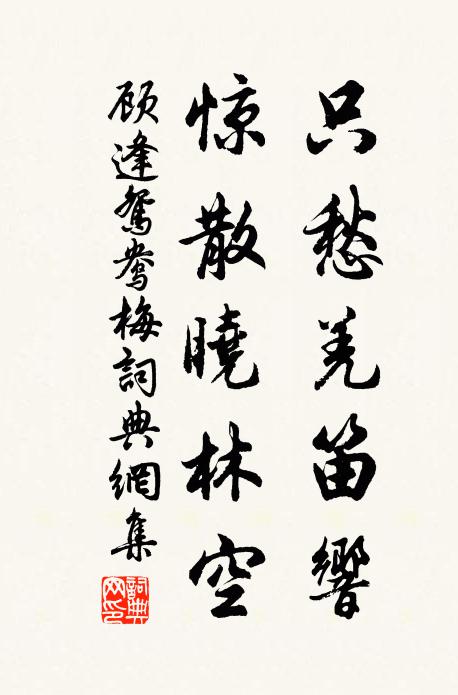 只愁羌笛響
惊散曉林空
顾逢鴛鴦梅詞典網集
詞典網印